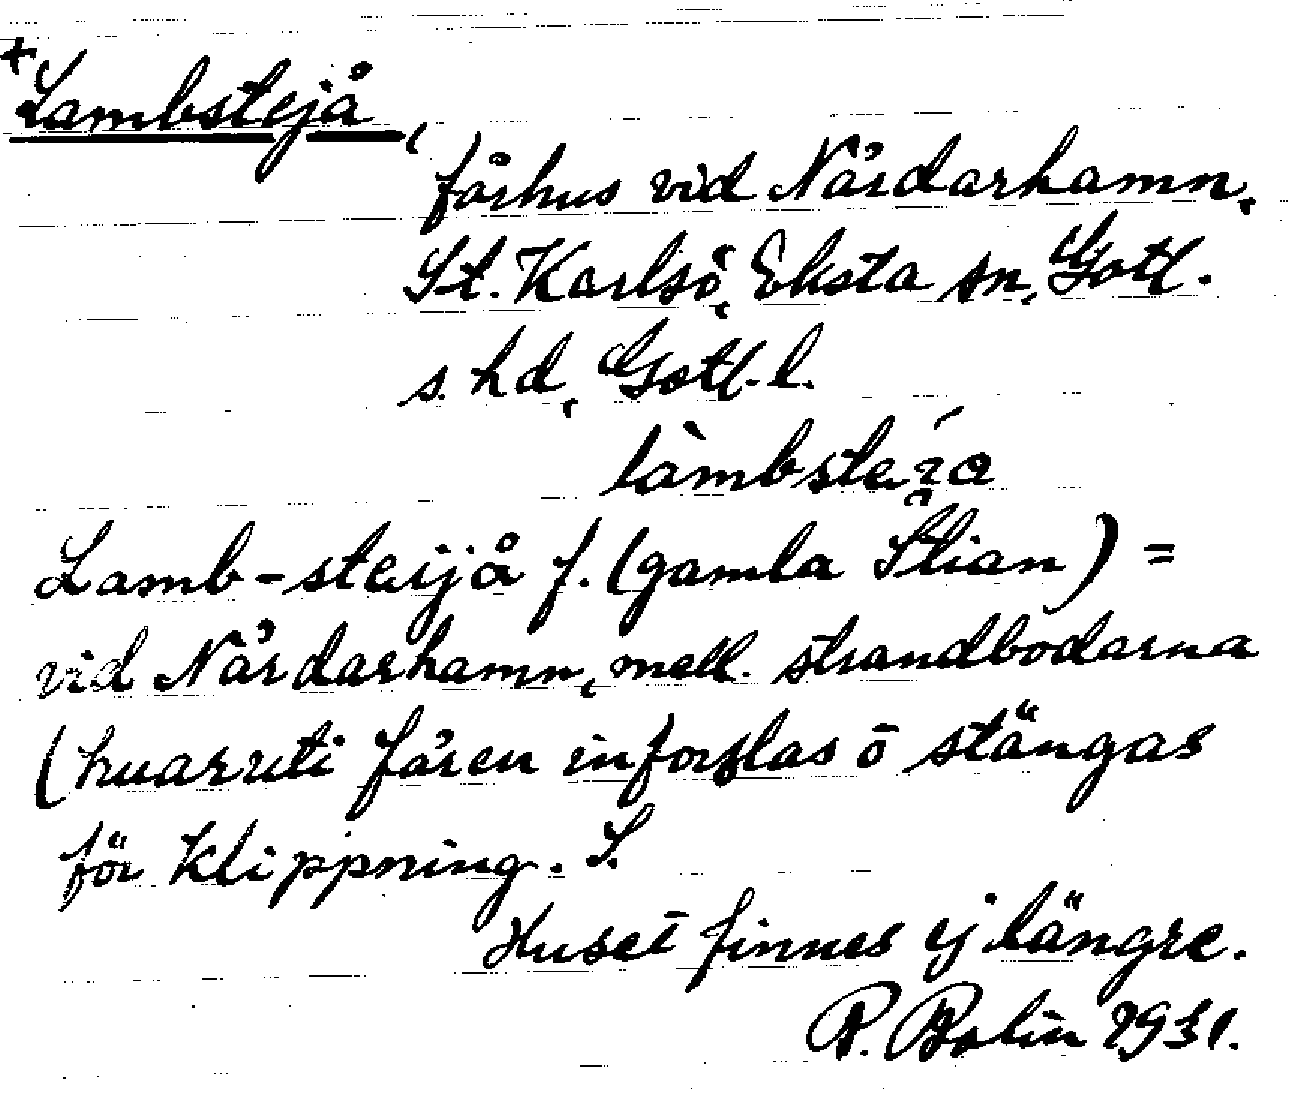 +Lambstejå,
fårhus vid Nårdarhamn,
St. Karlsö, Eksta sn, Gotl.
s. hd, Gotl. l.
Lamb-steijå f. (gamla Stian) =
vid Nårdarhamn, mell. strandbodarna
(huaruti fåren inforslas ō stängas
för klippning. S.
Huset finnes ej längre.
P. Bolin 1931.